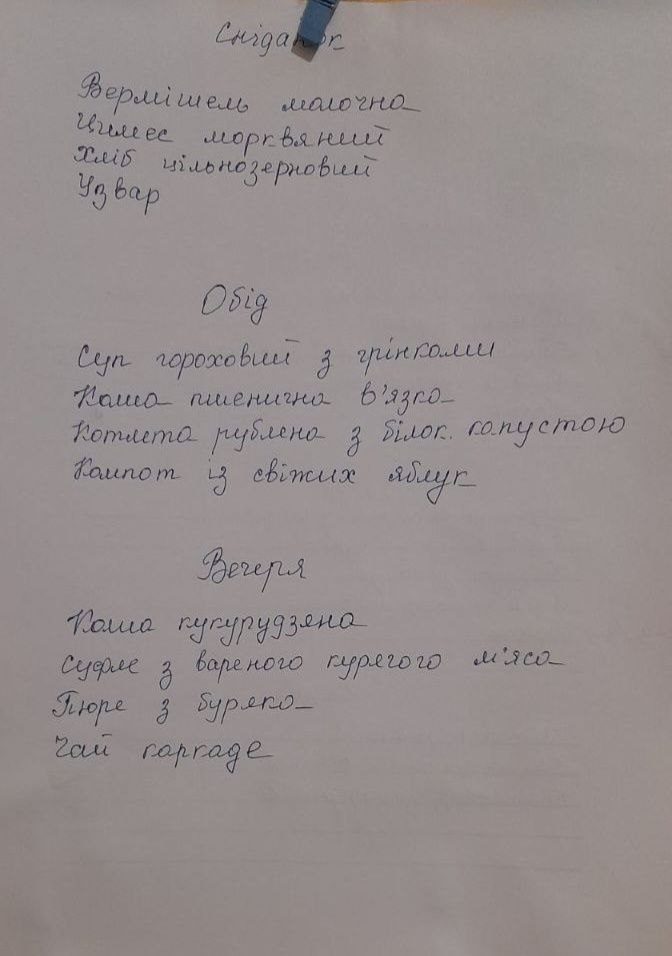 Сніданок
Вермішель молочна
Цимес морквяний
Хліб цільнозерновий
Узвар
Обід
Суп гороховий з грінками
Каша пшенична в'язка
Котлета рублена з білок. капустою
Компот із свіжих яблук
Вечеря
Каша кукурудзяна
Суфле з вареного курячого м'яса
Пюре з буряка
Чай каркаде